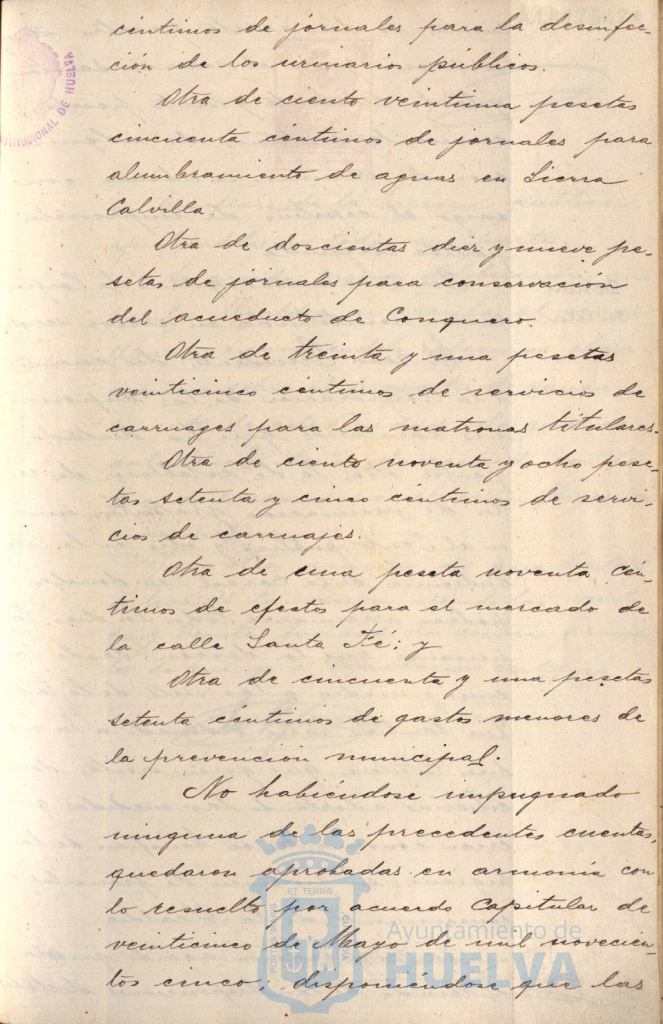 céntimos de jornales para la desinfec-
ción de los urinarios públicos.
Otra de ciento veintiuna pesetas
cincuenta céntimos de jornales para
alumbramiento de aguas en Sierra
Calvilla.
Otra de doscientas diez y nueve pe-
setas de jornales para conservación
del acueducto de Conquero.
Otra de treinta y una pesetas
veinticinco céntimos de servicios de
carruages para las matronas titulares.
Otra de ciento noventa y ocho pese-
tas setenta y cinco céntimos de servi-
cios de carruajes.
Otra de una peseta noventa cén-
timos de efectos para el mercado de
la calle Santa Fé; y
Otra de cincuenta y una pesetas
setenta céntimos de gastos menores de
la prevención municipal.
No habiéndose impugnado
ninguna de las precedentes cuentas,
quedaron aprobadas en armonía con
lo resuelto por acuerdo Capitular de
veinticinco de Mayo de mil novecien-
tos cinco; disponiéndose que las
TITUCIONAL DE HUELVA
PORTUS MARIS
ET TERRÆ
CUSTODIA
Ayuntamiento de
HUELVA